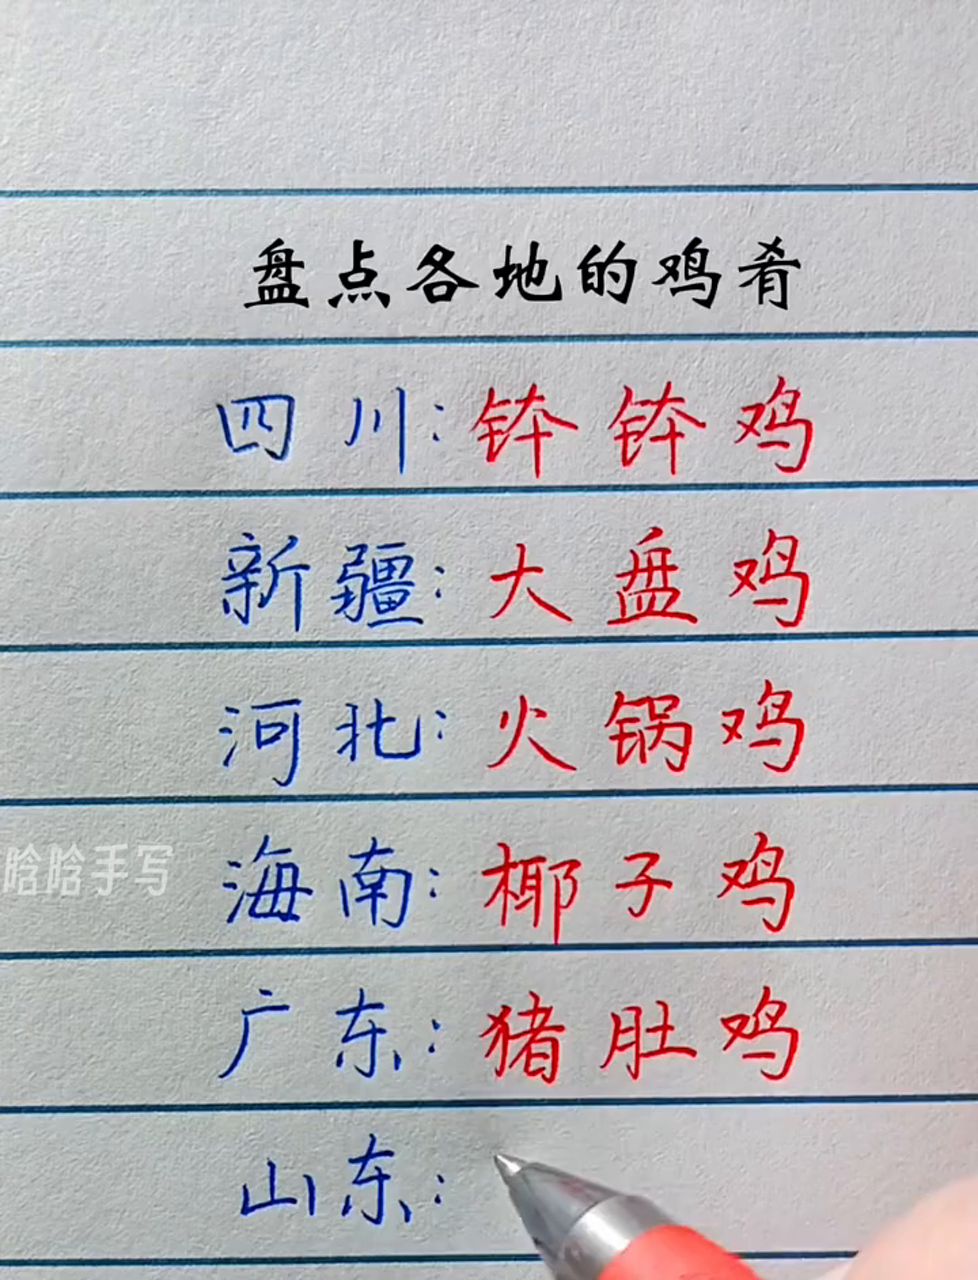 盘点各地的鸡肴
四川:钵钵鸡
新疆:大盘鸡
河北:火锅鸡
海南:椰子鸡
哈哈手写
广东:猪肚鸡
山东: